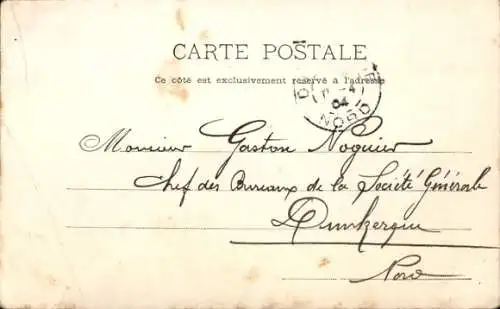 CARTE POSTALE
Ce côté est exclusivement réservé à l'adresse
04
NORD
Monsieur Gaston Noguier
Chef des Bureaux de la Société Générale
Dunkerque
Nord